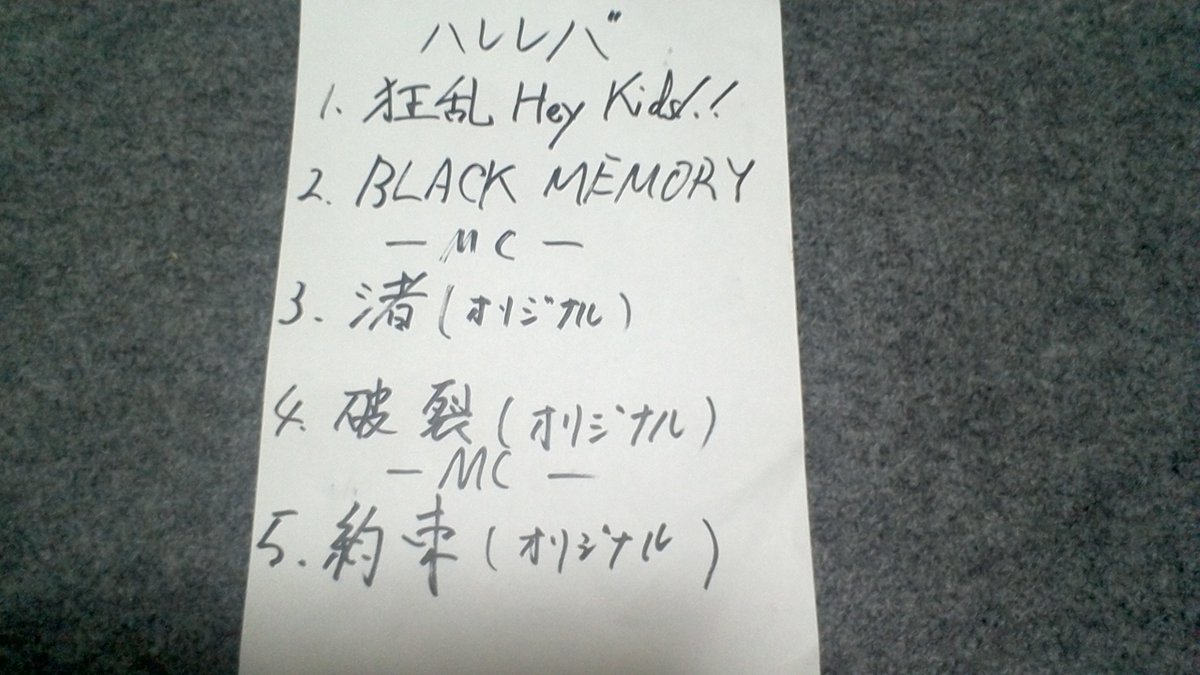 ハレレバ
1. 狂乱 Hey Kids!!
2. BLACK MEMORY
— MC —
3. 渚(オリジナル)
4. 破裂(オリジナル)
— MC —
5. 約束(オリジナル)